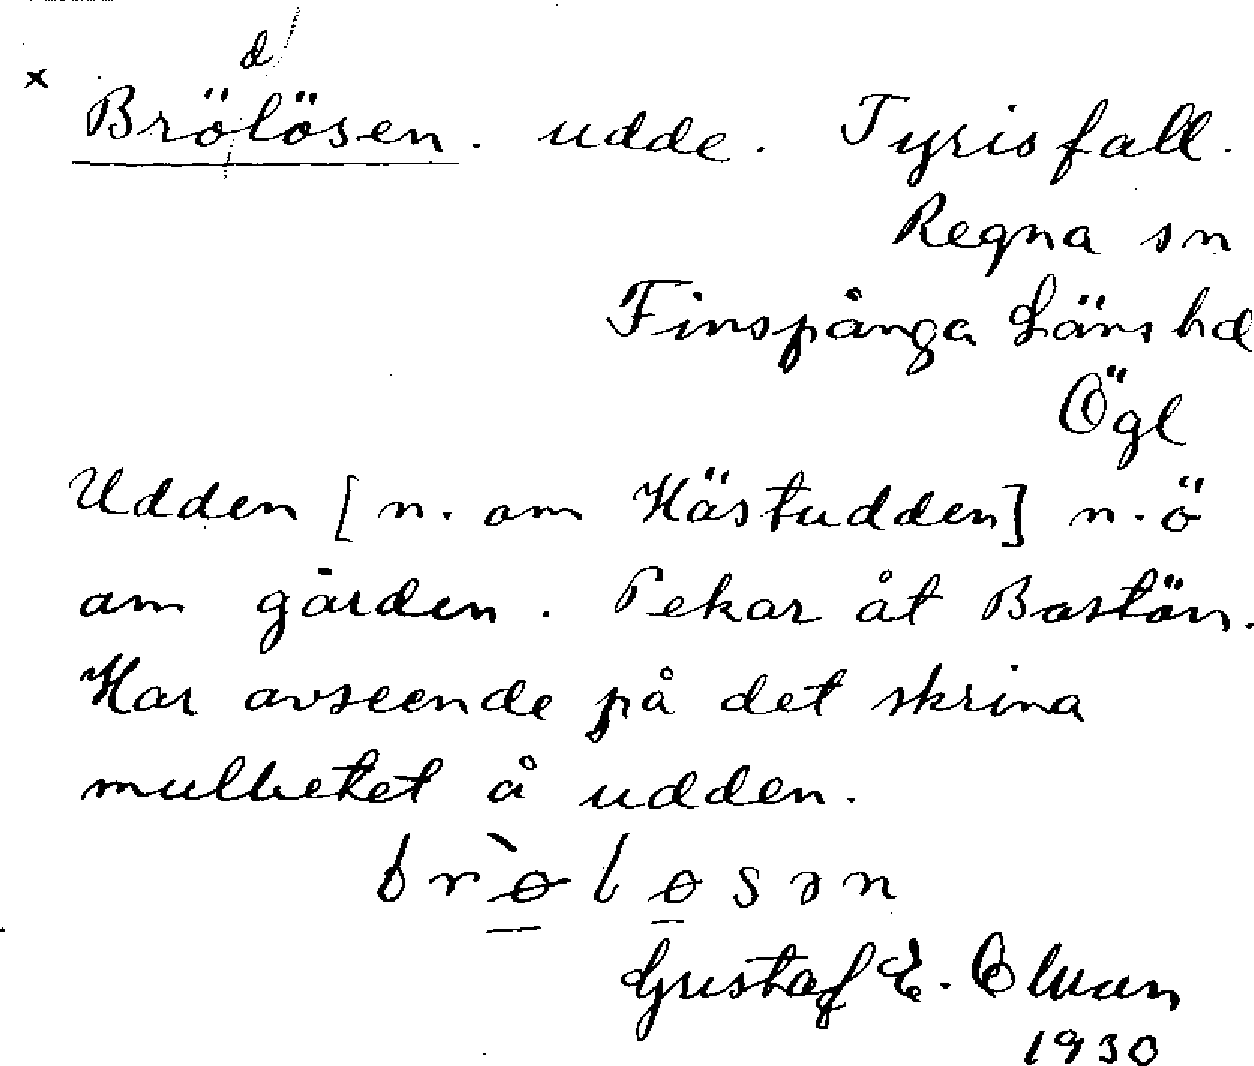 d
x Brölösen. udde. Tyrisfall.
Regna sn
Finspånga Läns hd
Ögl
Udden [n. om Hästudden] n.ö
om gården. Pekar åt Bastön.
Har avseende på det skrina
mullhetet å udden.
brò̱lo̱sən
Gustaf E.
1930